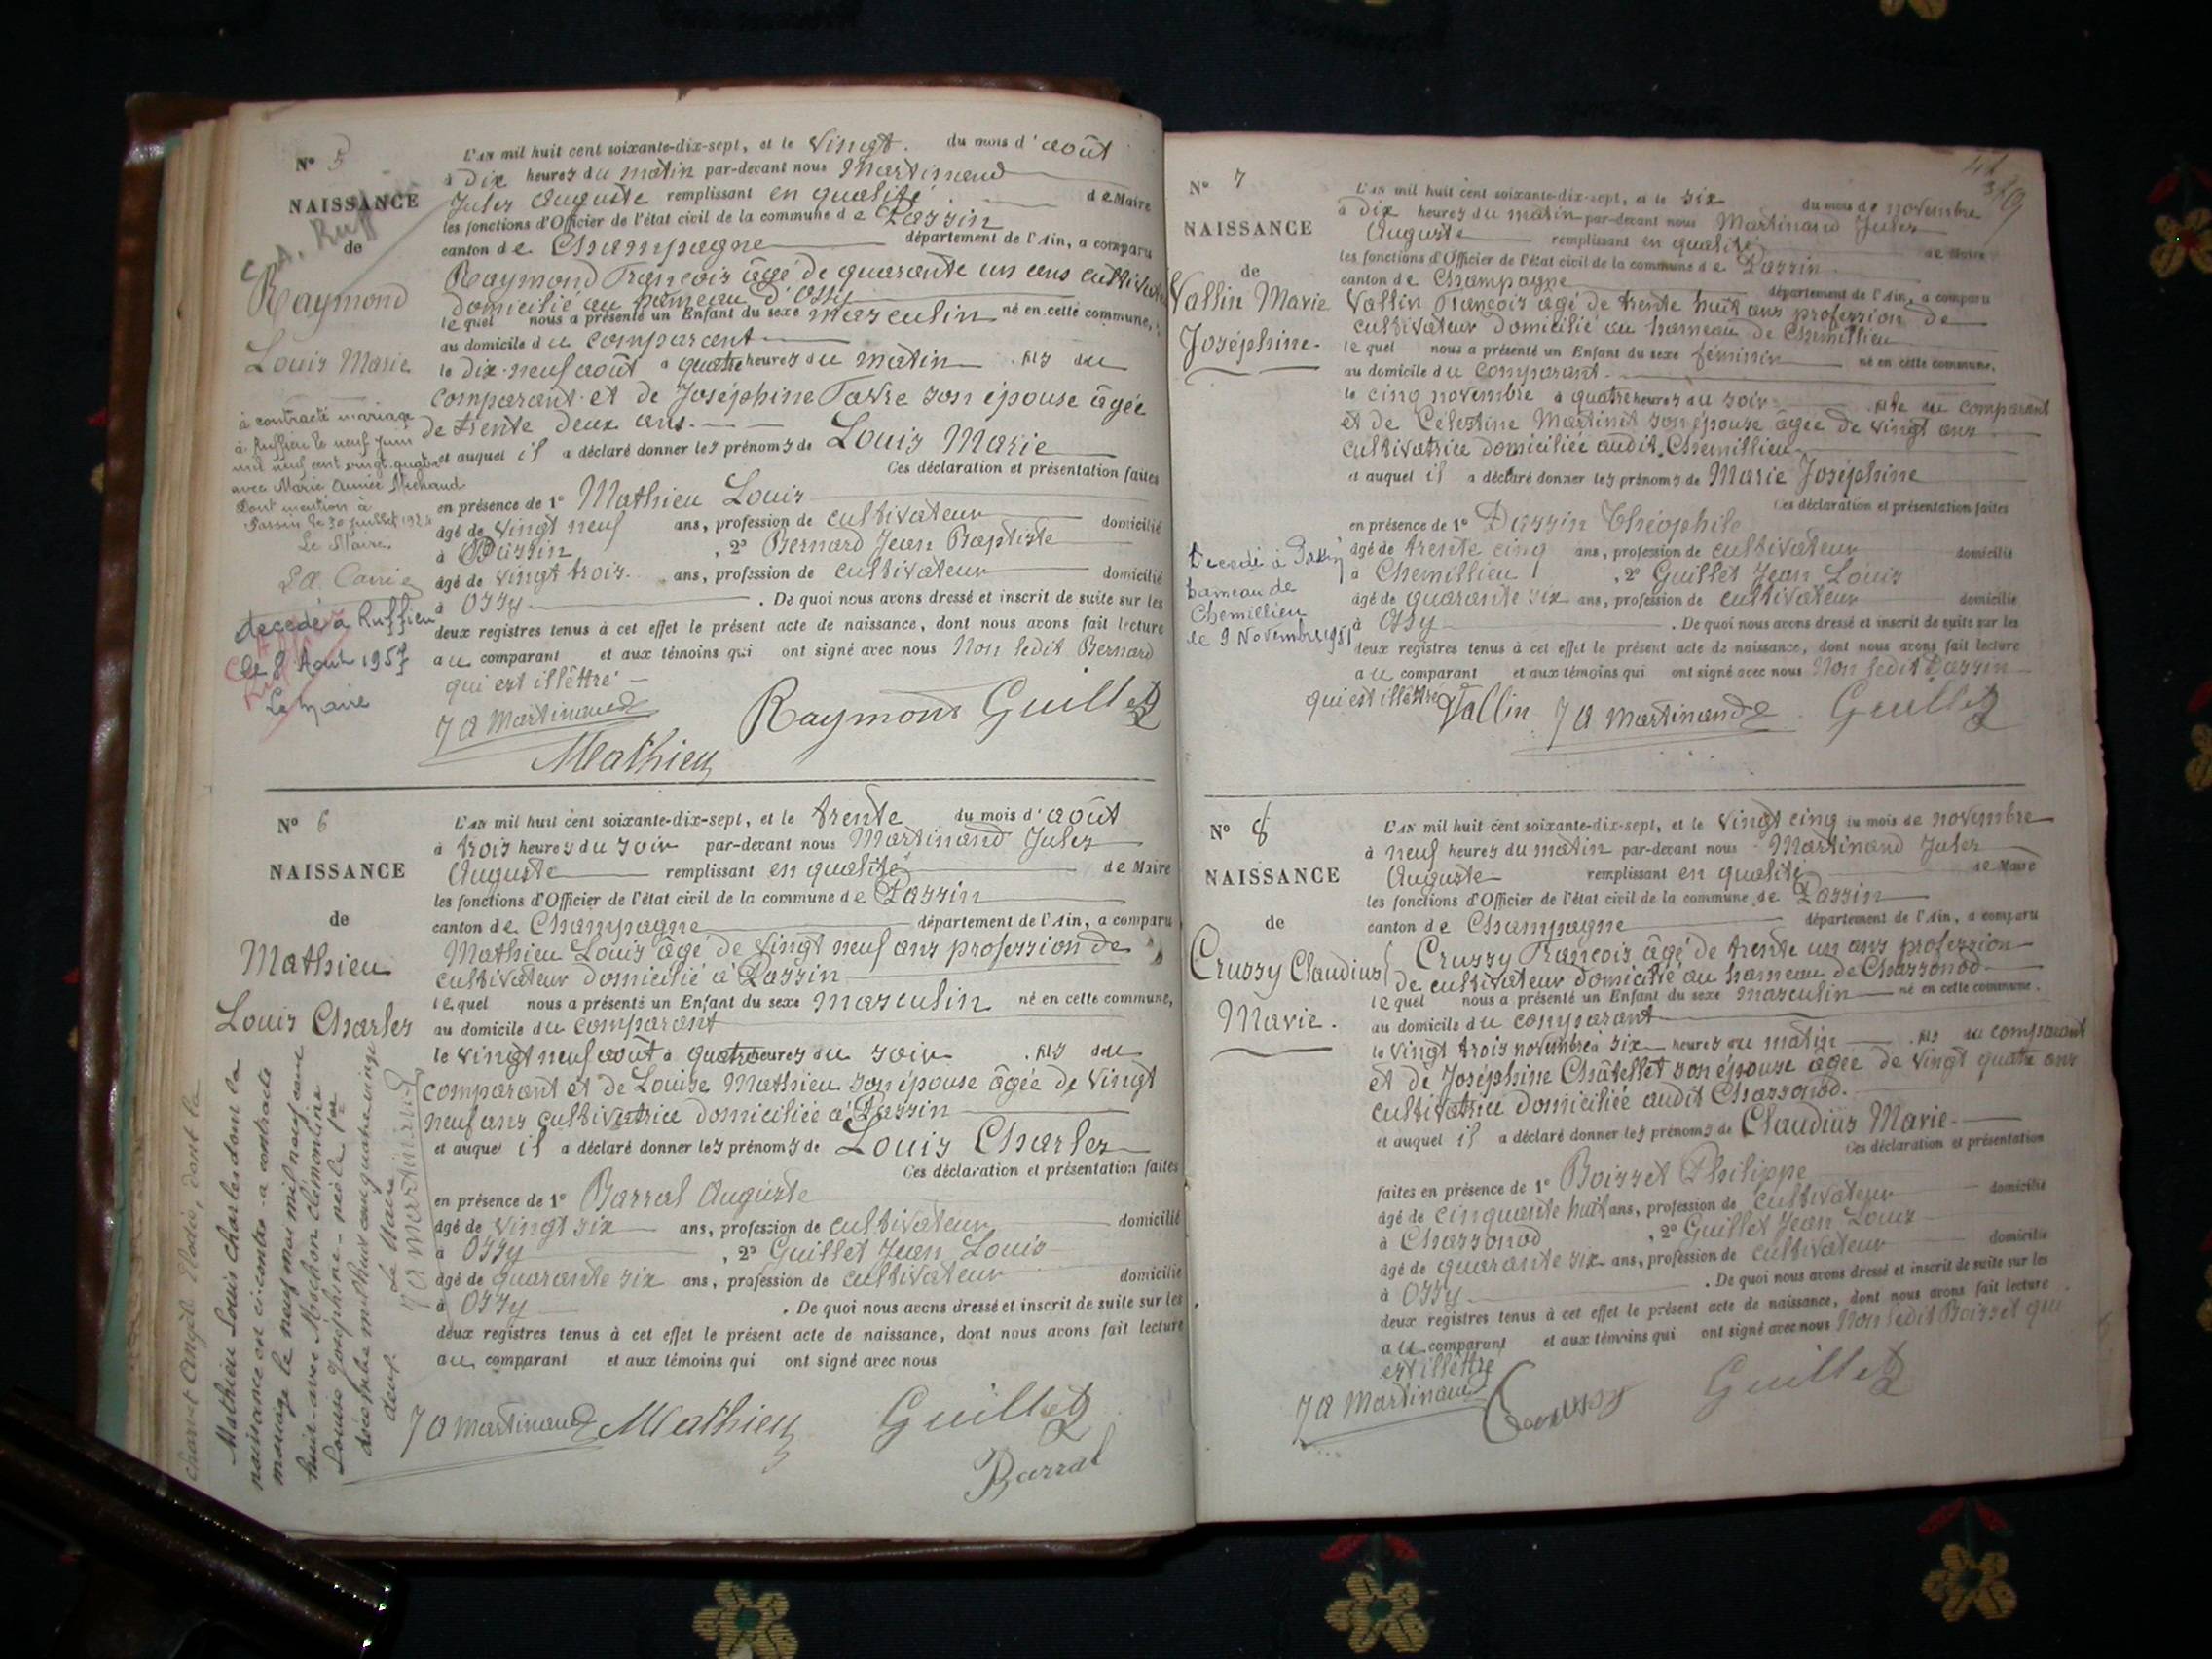 N° 5
NAISSANCE
de
Raymond
Louis Marie
à contracté mariage
à Ruffieu le neuf juin
mil neuf cent vingt-quatre
avec Marie Aimée Michaud
Dont mention à
Passin le 30 juillet 1924
Le Maire
décédé à Ruffieu
le 8 Août 1957
Le Maire
L'AN mil huit cent soixante-dix-sept, et le vingt du mois d'août
à dix heures du matin par-devant nous Martinand
Jules Auguste remplissant en qualité de Maire
les fonctions d'Officier de l'état civil de la commune de Passin
canton de Champagne département de l'Ain, a comparu
Raymond François âgé de quarante un ans cultivateur
domicilié au hameau d'Ossy
lequel nous a présenté un Enfant du sexe masculin né en cette commune,
au domicile du comparant
le dix-neuf août à quatre heures du matin fils du
comparant et de Joséphine son épouse âgée
de trente deux ans.
et auquel il a déclaré donner les prénoms de Louis Marie
Ces déclaration et présentation faites
en présence de 1° Mathieu Louis
âgé de vingt neuf ans, profession de cultivateur domicilié
à Passin, 2° Bernard Jean Baptiste
âgé de vingt trois ans, profession de cultivateur domicilié
à Ossy. De quoi nous avons dressé et inscrit de suite sur les
deux registres tenus à cet effet le présent acte de naissance, dont nous avons fait lecture
au comparant et aux témoins qui ont signé avec nous Non ledit Bernard
qui est illêttré
J A Martinand Raymond Guillet
Mathieu
N° 6
NAISSANCE
de
Mathieu
Louis Charles
L'AN mil huit cent soixante-dix-sept, et le trente du mois d'août
à trois heures du soir par-devant nous Martinand Jules
Auguste remplissant en qualité de Maire
les fonctions d'Officier de l'état civil de la commune de Passin
canton de Champagne département de l'Ain, a comparu
Mathieu Louis âgé de vingt neuf ans profession de
cultivateur domicilié à Passin
lequel nous a présenté un Enfant du sexe masculin né en cette commune,
au domicile du comparant
le vingt neuf août à quatre heures du soir fils du
comparant et de Louise Mathieu son épouse âgée de vingt
neuf ans cultivatrice domiciliée à Passin
et auquel il a déclaré donner les prénoms de Louis Charles
Ces déclaration et présentation faites
en présence de 1° Barral Auguste
âgé de vingt six ans, profession de cultivateur domicilié
à Ossy, 2° Guillet Jean Louis
âgé de quarante six ans, profession de cultivateur domicilié
à Ossy. De quoi nous avons dressé et inscrit de suite sur les
deux registres tenus à cet effet le présent acte de naissance, dont nous avons fait lecture
au comparant et aux témoins qui ont signé avec nous
J A Martinand Mathieu Guillet
Barral
Mathieu Louis Charles dont la
naissance est ci-contre - a contracté
mariage le neuf mai mil neuf cent
huit avec Mochon Clémentine
Louise Joséphine - née le
décembre mil huit cent quatre vingt
deux. Le Maire
J A Martinand
Charvet Angèle Elodie, dont la
N° 7
NAISSANCE
de
Vallin Marie
Joséphine
Decedé à Passin
hameau de
Chemillieu
le 9 Novembre 1951
L'AN mil huit cent soixante-dix-sept, et le six du mois de novembre
à dix heures du matin par-devant nous Martinand Jules
Auguste remplissant en qualité de Maire
les fonctions d'Officier de l'état civil de la commune de Passin
canton de Champagne département de l'Ain, a comparu
Vallin François âgé de trente huit ans profession de
cultivateur domicilié au hameau de Chemillieu
lequel nous a présenté un Enfant du sexe féminin né en cette commune,
au domicile du comparant
le cinq novembre à quatre heures du soir fille du comparant
et de Célestine Martinet son épouse âgée de vingt ans
cultivatrice domiciliée audit Chemillieu
et auquel il a déclaré donner les prénoms de Marie Joséphine
Ces déclaration et présentation faites
en présence de 1° Dassin Théophile
âgé de trente cinq ans, profession de cultivateur domicilié
à Chemillieu, 2° Guillet Jean Louis
âgé de quarante six ans, profession de cultivateur domicilié
à Ossy. De quoi nous avons dressé et inscrit de suite sur les
deux registres tenus à cet effet le présent acte de naissance, dont nous avons fait lecture
au comparant et aux témoins qui ont signé avec nous Non ledit Dassin
qui est illêttré Vallin J A Martinand Guillet
N° 8
NAISSANCE
de
Crussy Claudius
Marie.
L'AN mil huit cent soixante-dix-sept, et le vingt cinq du mois de novembre
à neuf heures du matin par-devant nous Martinand Jules
Auguste remplissant en qualité de Maire
les fonctions d'Officier de l'état civil de la commune de Passin
canton de Champagne département de l'Ain, a comparu
Crussy François âgé de trente un ans profession
de cultivateur domicilié au hameau de Chassonod
lequel nous a présenté un Enfant du sexe masculin né en cette commune.
au domicile du comparant
le vingt trois novembre à six heures du matin fils du comparant
et de Joséphine Châtellet son épouse âgée de vingt quatre ans
cultivatrice domiciliée audit Chassonod.
et auquel il a déclaré donner les prénoms de Claudius Marie
Ces déclaration et présentation
faites en présence de 1° Boisset Philippe
âgé de cinquante huit ans, profession de cultivateur domicilié
à Chassonod, 2° Guillet Jean Louis
âgé de quarante six ans, profession de cultivateur domicilié
à Ossy. De quoi nous avons dressé et inscrit de suite sur les
deux registres tenus à cet effet le présent acte de naissance, dont nous avons fait lecture
au comparant et aux témoins qui ont signé avec nous Non ledit Boisset qui
est illêttré
J A Martinand Crussy Guillet